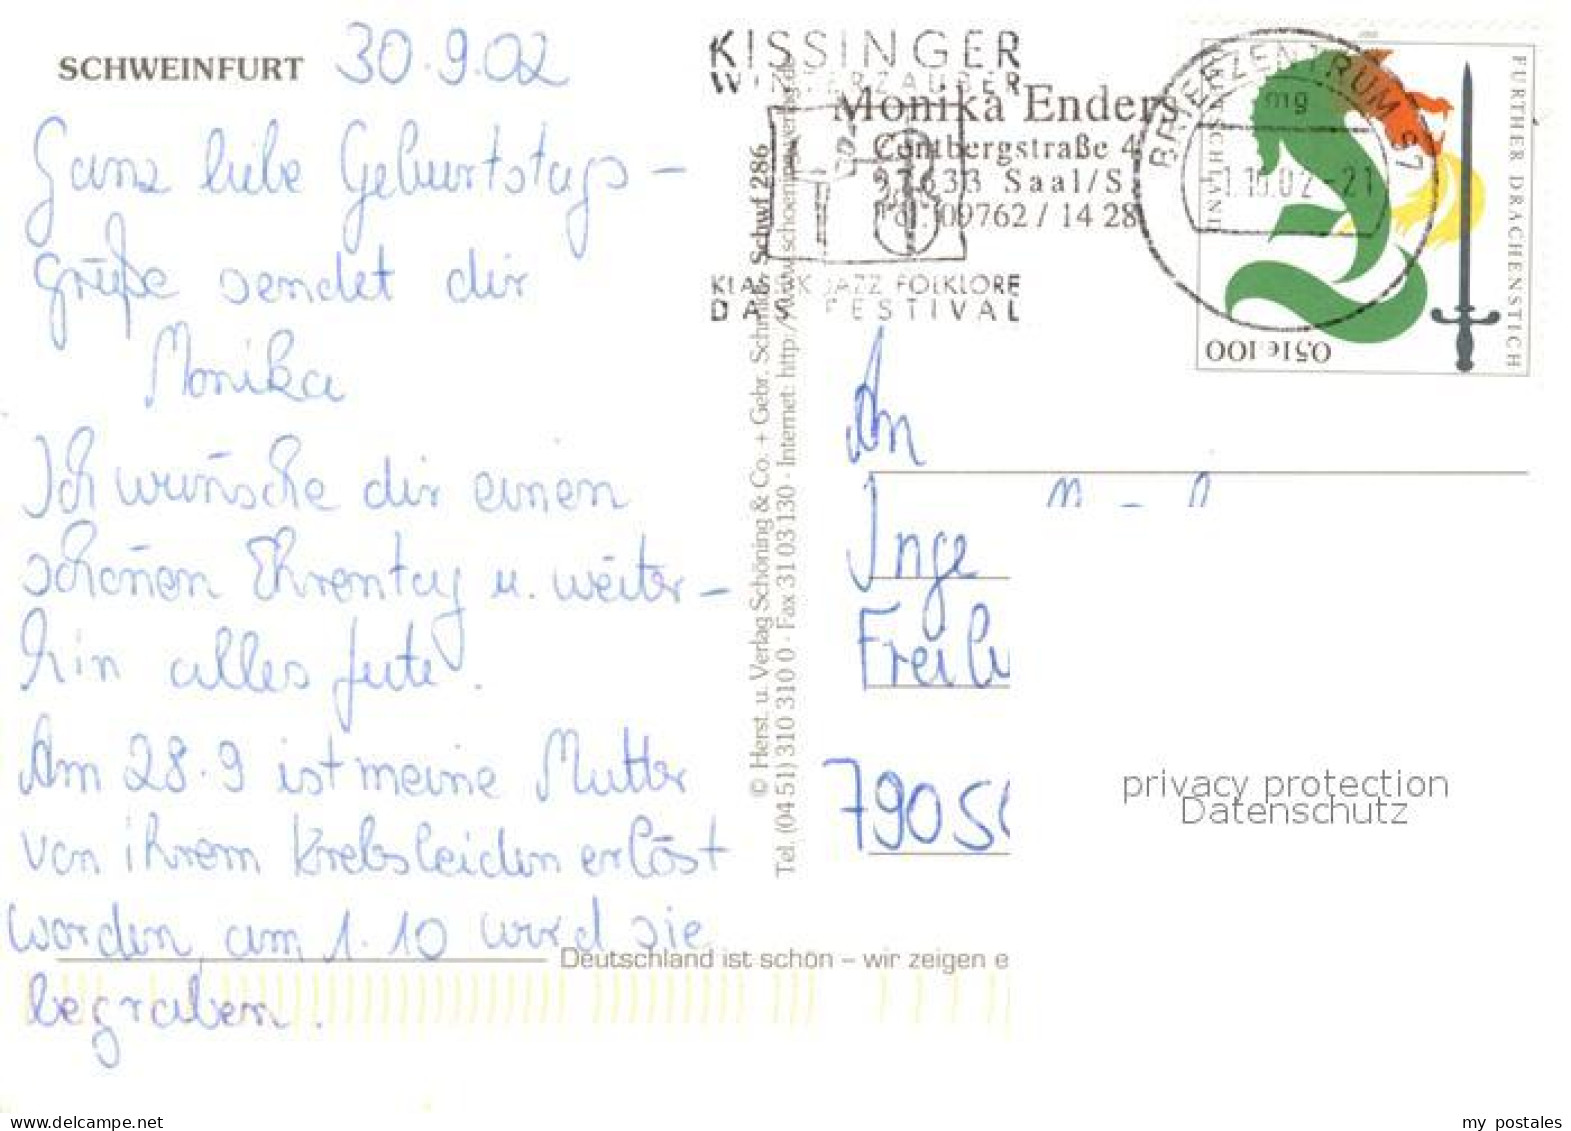 SCHWEINFURT 30.9.02
Ganz liebe Geburtstags-
grüße sendet dir
Monika
Ich wünsche dir einen
schönen Ehrentag u. weiter-
hin alles gute.
Am 28.9 ist meine Mutter
von ihrem Krebsleiden erlöst
worden, am 1.10 wird sie
begraben.
© Herst. u. Verlag Schöning & Co. + Gebr. Schmidt · Schwf 286
Tel. (04 51) 310 310 0 · Fax 31 03 130 · Internet: http://www.schoening-verlag.de
KISSINGER
WINTERZAUBER
KLASSIK JAZZ FOLKLORE
DAS FESTIVAL
Monika Enders
97633 Saal/S.
Tel. 09762 / 14 28
BRIEFZENTRUM 97
mg
-1.10.02-21
DEUTSCHLAND
FURTHER DRACHENSTICH
0,51€ 100
An
Inge
7905
privacy protection
Datenschutz
Deutschland ist schön – wir zeigen e
www.ansichtskartenversand.com
my postales